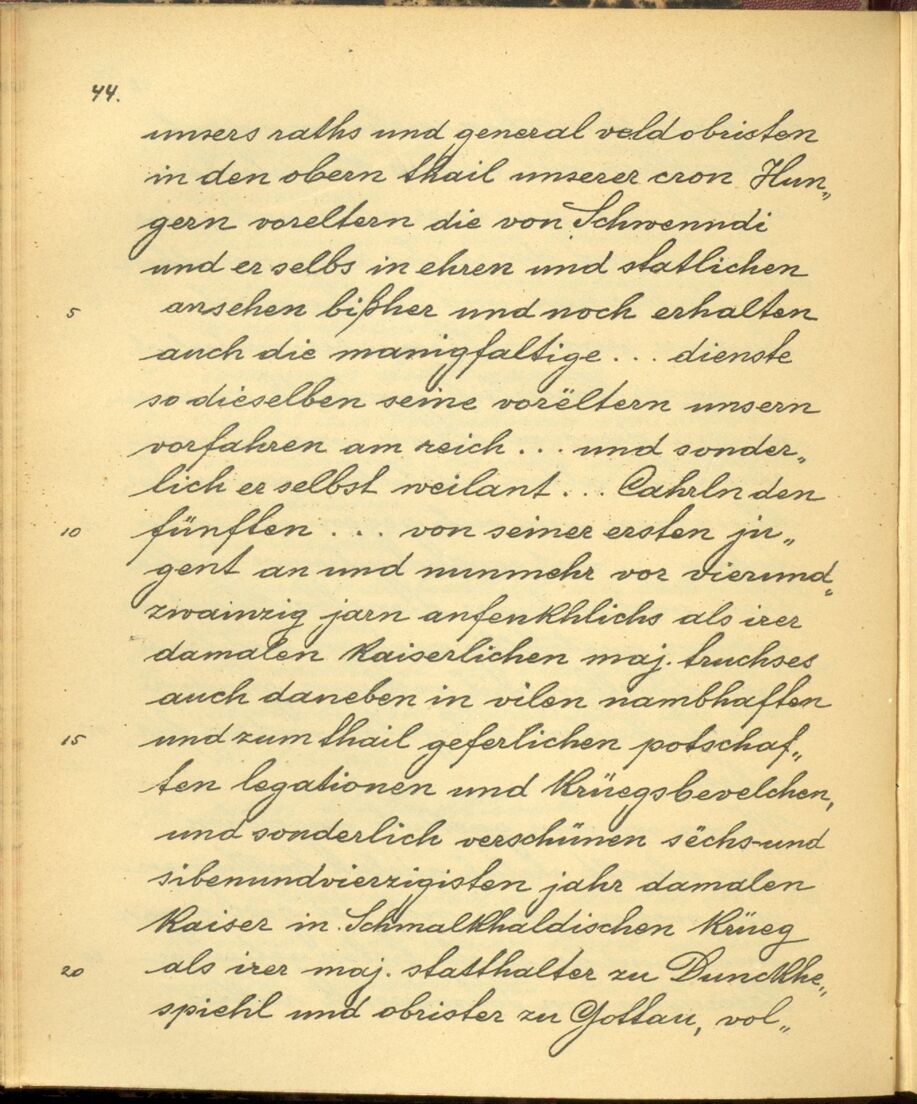 44.
unsers raths und general veldobristen
in den obern thail unserer cron Hun„
gern voreltern die von Schwenndi
und er selbs in ehren und statlichen
5 ansehen bißher und noch erhalten
auch die manigfaltige... dienste
so dieselben seine vorëltern unsern
vorfahren am reich... und sonder„
lich er selbst weilant... Cahrln den
10 fünften... von seiner ersten ju„
gent an und nunmehr vor vierund„
zwainzig jarn anfenkhlichs als irer
damalen kaiserlichen maj. truchses
auch daneben in vilen nambhaften
15 und zum thail geferlichen potschaf„
ten legationen und krüegsbevelchen,
und sonderlich verschünen sëchs-und
sibenundvierzigisten jahr damalen
kaiser in Schmalkhaldischen krüeg
20 als irer maj. statthalter zu Dunckhe„
spiehl und obrister zu Gottau, vol„